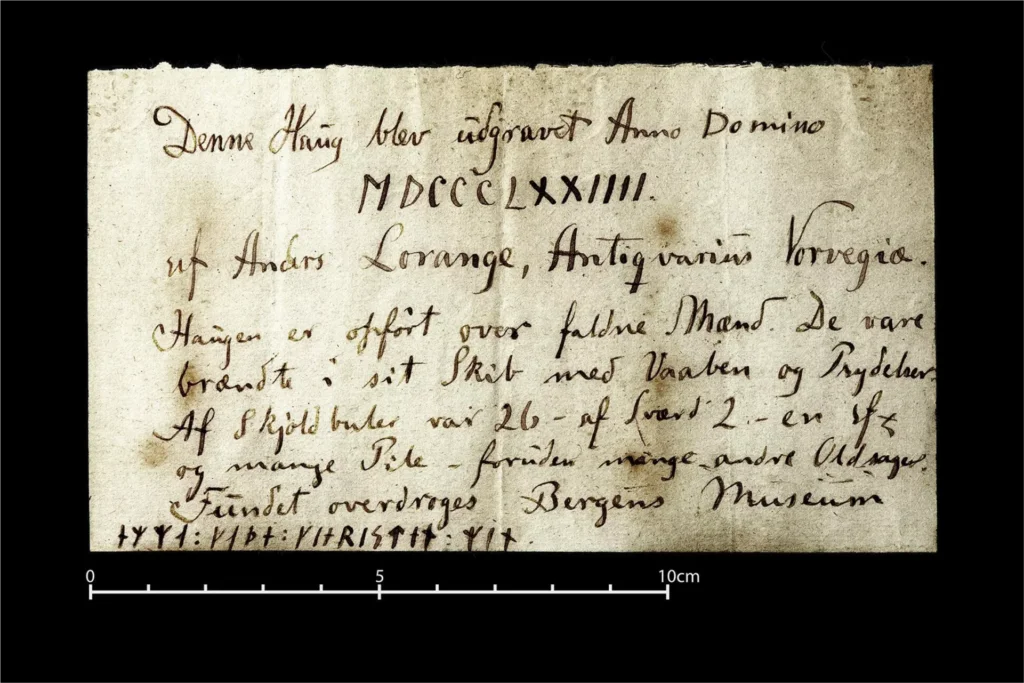 Denne Haug blev udgravet Anno Domino
MDCCCLXXIIII.
af Anders Lorange, Antiqvarius Norvegiæ.
Haugen er opført over faldne Mænd. De vare
brændte i sit Skib med Vaaben og Prydelser
Af Skjoldbuler var 26 – af Sværd 2 – en
og mange Pile – foruden mange andre Oldsager.
Fundet overdroges Bergens Museum
0 5 10cm